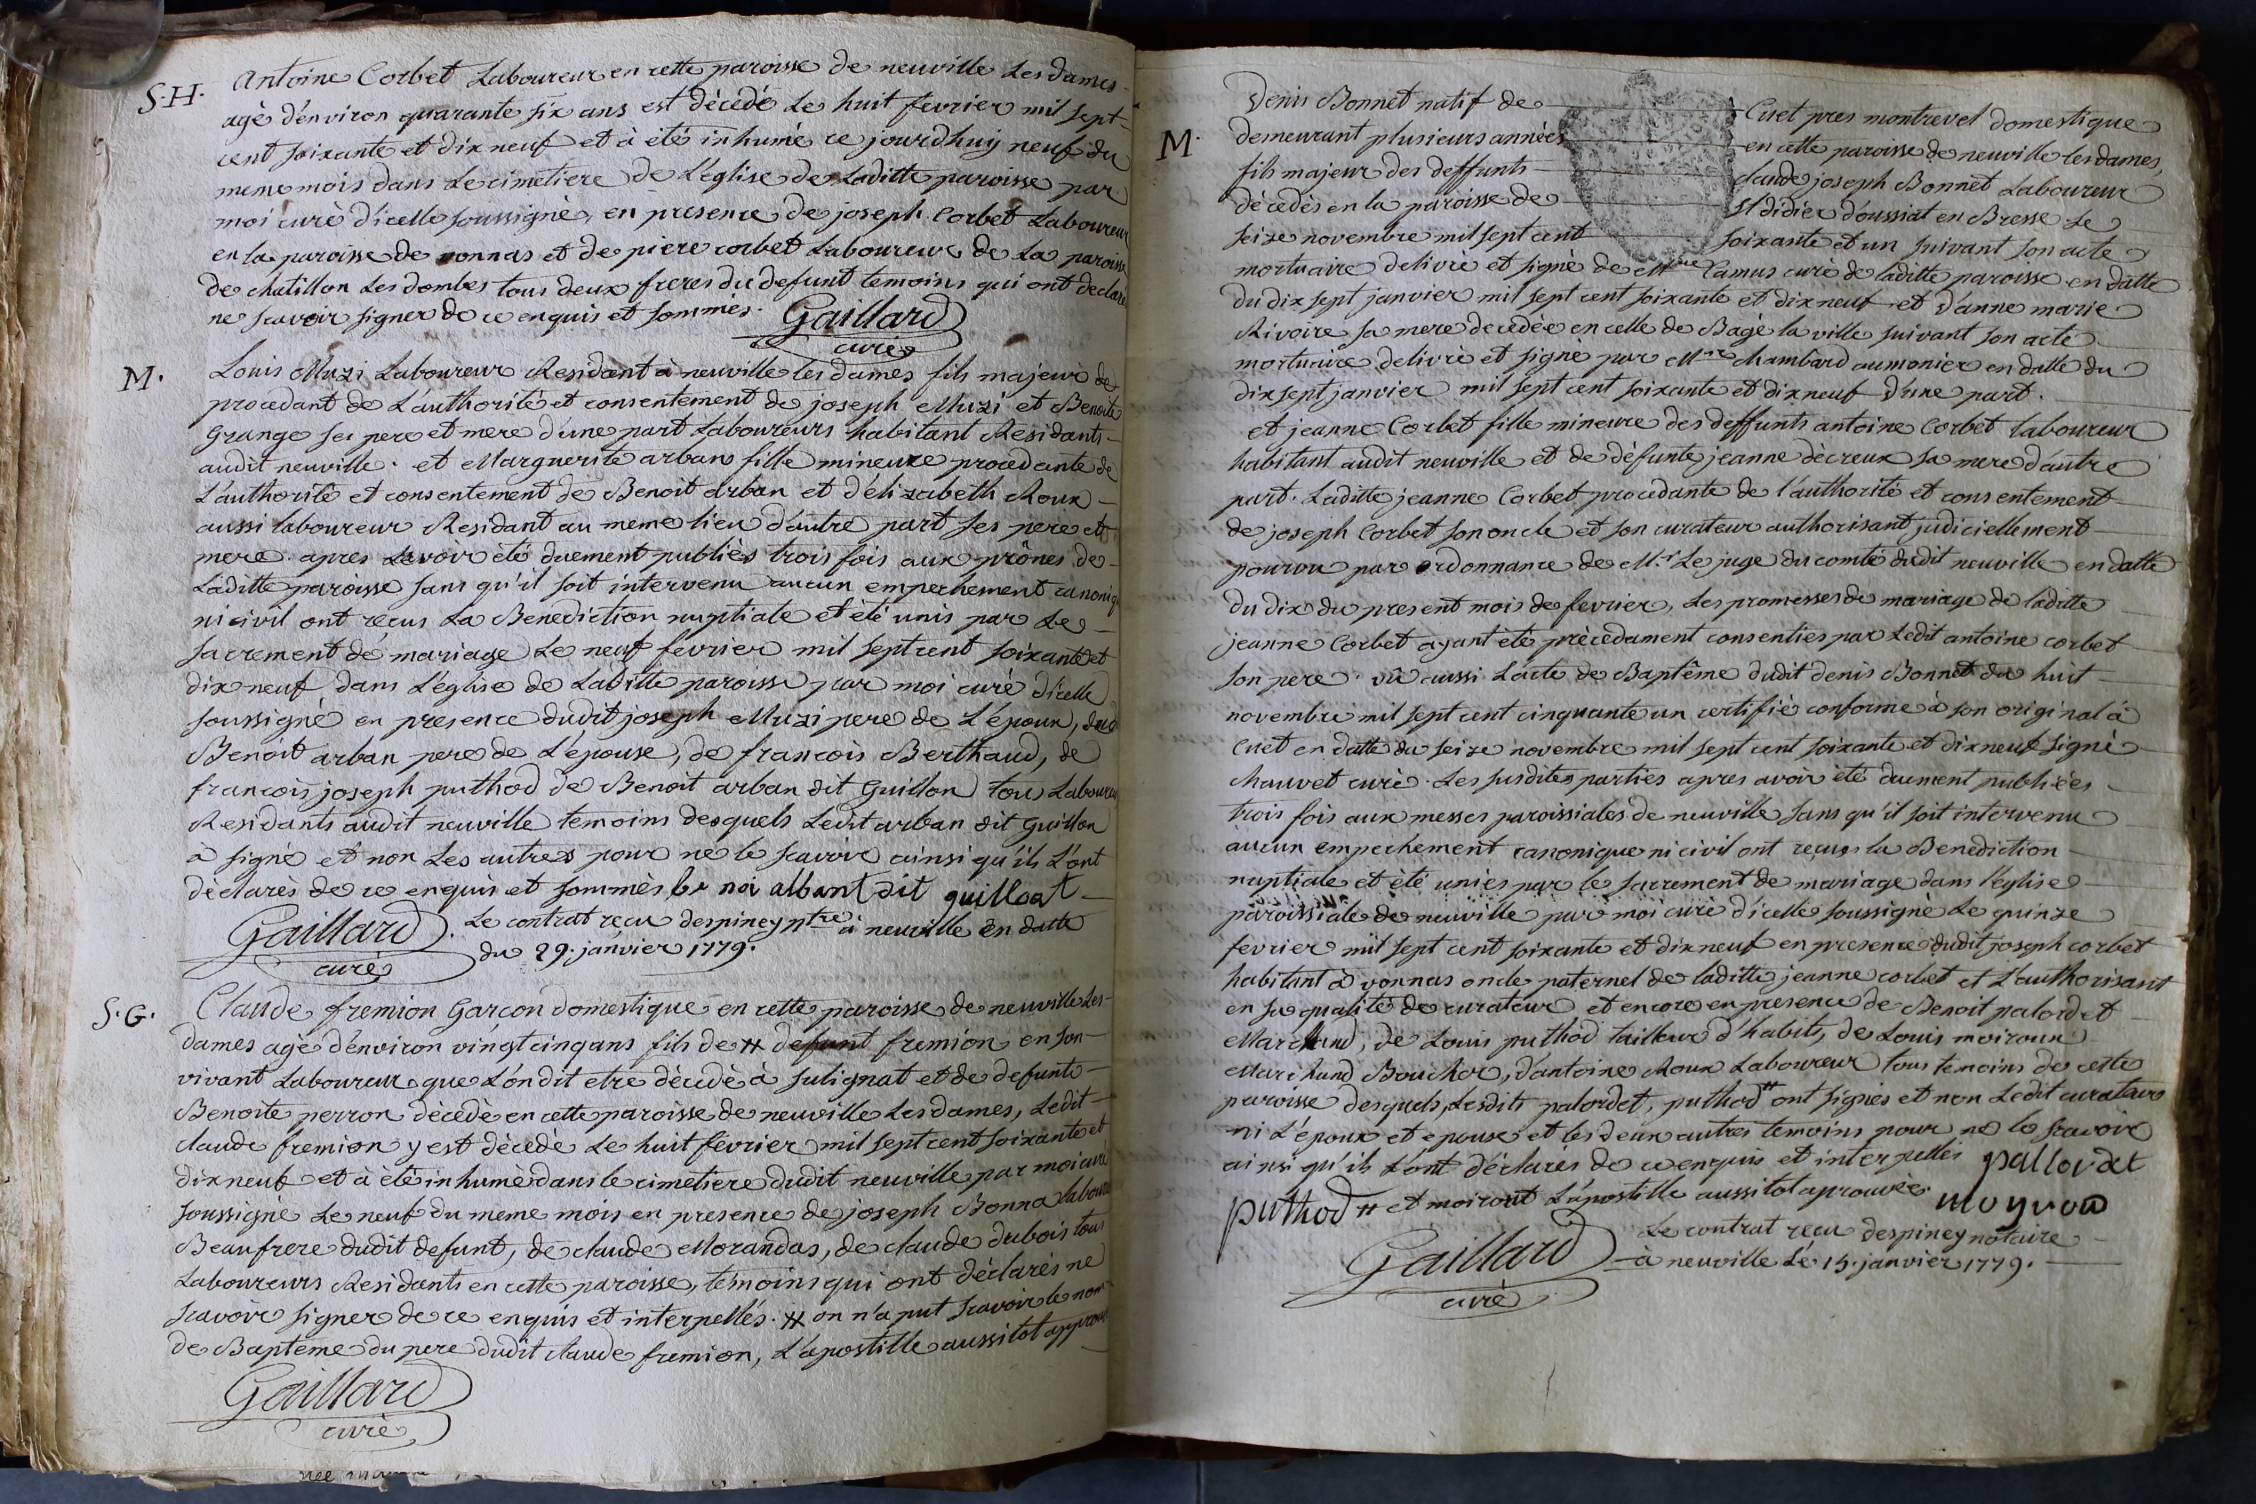 S.H.
Antoine Corbet Laboureur en cette paroisse de neuville Les dames
agè d'environ quarante six ans est dècedé Le huit fevrier mil sept
cent soixante et dix neuf et à été inhumé ce jourd'huy neuf du
meme mois dans Le cimetiere de L'èglise de Laditte paroisse par
moi curè d'icelle soussignè, en presence de joseph Corbet Laboureur
en la paroisse de vonnas et de piere corbet Laboureur de La paroisse
de chatillon Les dombes tous deux freres du defunt temoins qui ont declaré
ne scavoir signer de ce enquis et sommès.
Gaillard
curé
M.
Louis Muzi Laboureur Residant à neuville les dames fils majeur de
procedant de L'authorité et consentement de joseph Muzi et Benoite
Grange ses pere et mere d'une part Laboureurs habitant Residants
audit neuville. et Marguerite arban fille mineure procedante de
L'authorité et consentement de Benoit arban et d'élizabeth Roux
aussi laboureur Residant au meme lieu d'autre part ses pere et
mere. apres avoir été duement publiès trois fois aux prônes de
Laditte paroisse sans qu'il soit intervenu aucun empechement canoniq
ni civil ont recus La Benediction nuptiale et été unis par Le
sacrement de mariage Le neuf fevrier mil sept cent soixante et
dix neuf dans L'èglise de Laditte paroisse par moi curé d'icelle
soussignè en presence dudit joseph Muzi pere de L'époux, dud
Benoit arban pere de L'épouse, de francois Berthaud, de
francois joseph puthod de Benoit arban dit Guillon tous Laboureurs
Residants audit neuville temoins desquels Ledit arban dit Guillon
à signé et non Les autres pour ne le scavoir ainsi qu'ils L'ont
dèclarès de ce enquis et sommès be noi albant dit guilloat
Gaillard
curé
Le contrat reçu despiney ntre à neuville en datte
du 29. janvier 1779.
S.G.
Claude fremion Garcon domestique en cette paroisse de neuville Les
dames agè d'environ vingt cinq ans fils de # defunt fremion en son
vivant Laboureur que L'on dit etre dècedè à sulignat et de defunte
Benoite perron dècedè en cette paroisse de neuville Les dames, Ledit
claude fremion y est dècedè Le huit fevrier mil sept cent soixante et
dix neuf et à été inhumè dans le cimetiere dudit neuville par moi curé
soussignè Le neuf du meme mois en presence de joseph Bonna laboureur
Beaufrere dudit defunt, de claude Morandas, de claude dubois tous
Laboureurs Residants en cette paroisse, temoins qui ont dèclarès ne
scavoir signer de ce enquis et interpellés. # on n'a put scavoir le nom
de Baptême du pere dudit claude fremion, L'apostille aussitot approuvé
Gaillard
curè
M.
Denis Bonnet natif de Cuet pres montrevel domestique
demeurant plusieurs années en cette paroisse de neuville les dames,
fils majeur des deffunts claude joseph Bonnet Laboureur
dècedès en la paroisse de St didier d'oussiat en Bresse Le
seize novembre mil sept cent soixante et un suivant son acte
mortuaire delivrè et signè de Mre Camus curè de laditte paroisse en datte
du dix sept janvier mil sept cent soixante et dix neuf et d'anne marie
Rivoire sa mere decedèe en celle de Bagè la ville suivant son acte
mortuaire delivrè et signè par Mre chambard aumonier en datte du
dix sept janvier mil sept cent soixante et dix neuf d'une part.
et jeanne Corbet fille mineure des deffunts antoine Corbet laboureur
habitant audit neuville et de dèfunte jeanne dècreux sa mere d'autre
part. Laditte jeanne Corbet procedante de l'authorité et consentement
de joseph Corbet son oncle et son curateur authorisant judiciellement
pourvu par ordonnance de Mr Le juge du comté dudit neuville en datte
du dix du present mois de fevrier, Les promesses de mariage de laditte
jeanne Corbet ayant été prècedament consenties par Ledit antoine corbet
son pere. vû aussi L'acte de Baptême dudit denis Bonnet du huit
novembre mil sept cent cinquante un certifié conforme à son original à
Cuet en datte du seize novembre mil sept cent soixante et dix neuf signè
chauvet curè. Les susdites parties apres avoir été duement publiées
trois fois aux messes paroissiales de neuville sans qu'il soit intervenu
aucun empechement canonique ni civil ont reçus la Benediction
nuptiale et été unies par le sacrement de mariage dans l'église
paroissiale de neuville par moi curè d'icelle soussignè Le quinze
fevrier mil sept cent soixante et dix neuf en presence dudit joseph corbet
habitant à vonnas oncle paternel de laditte jeanne corbet et L'authorisant
en sa qualité de curateur et encore en presence de Benoit palordet
Marchand, de Louis puthod tailleur d'habits, de Louis moiroux
Marchand Boucher, d'antoine Roux Laboureur tous temoins de cette
paroisse desquels, Lesdits palordet, puthod # ont signès et non Ledit curateur
ni L'époux et epouse et les deux autres temoins pour ne le scavoir
ainsi qu'ils L'ont dèclarés de ce enquis et interpellés pallordet
puthod # et moiroux L'apostille aussitot aprouvèe moyrou
Gaillard
curè
Le contrat recu despiney notaire
à neuville Le 15. janvier 1779.